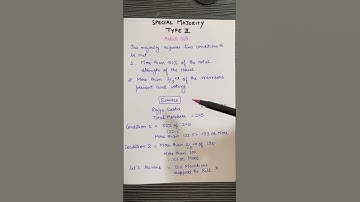 SPECIAL MAJORITY
TYPE II
This majority requires two conditions to
be met
1. More than 50% of the total
strength of the House
2. More than 2/3rd of the members
present and voting
Example
Rajya Sabha
Total Members = 245
Condition 1 = 50% of 245
122.5
More than 122.5 = 123 or More
Condition 2 = More than 2/3rd of 150
More than 100
101 or More
Let's Assume = 120 Members
support the Bill x